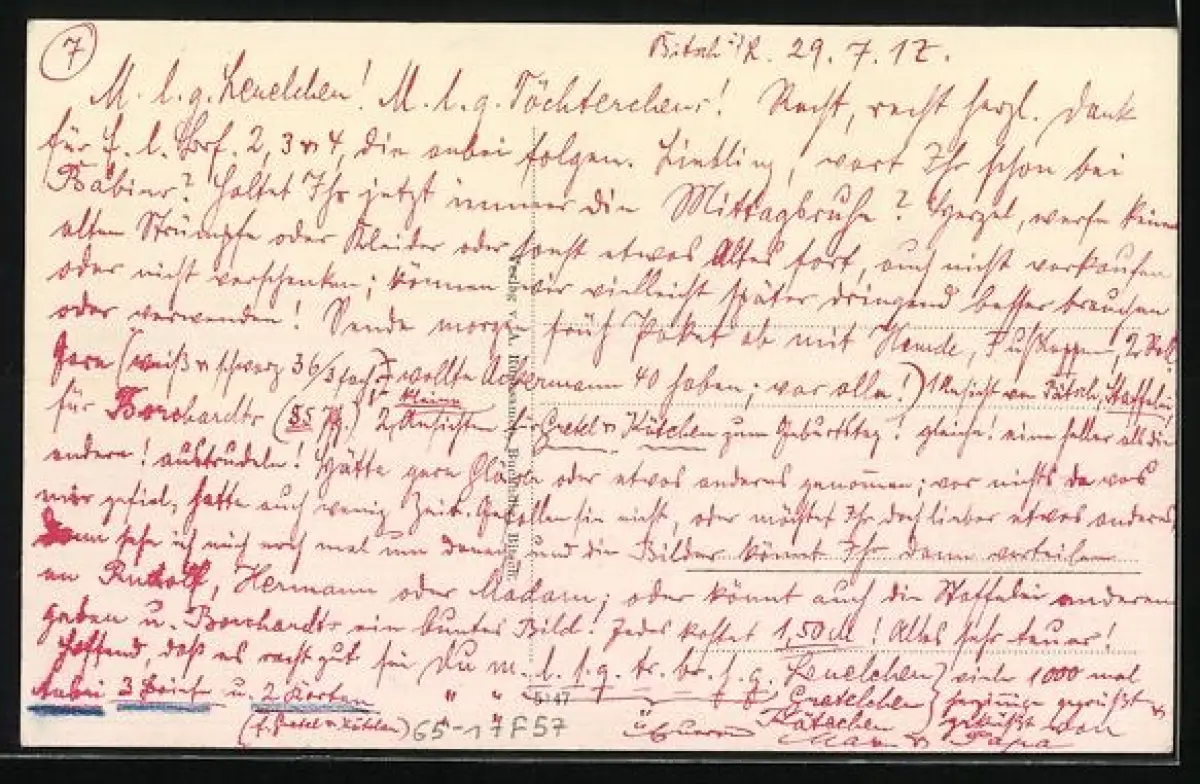 7
Bitsch i/L. 29.7.17.
M. l. g. Lenelchen! M. l. g. Töchterchens! Recht, recht herzl. Dank
für E. l. Brf. 2, 3 u 4, die anbei folgen. Liebling, wart Ihr schon bei
Bäbiner? Haltet Ihr jetzt immer die Mittagsruhe? Herzel, werfe keine
alten Strümpfe oder Kleider oder sonst etwas Altes fort, auch nicht verkaufen
oder nicht verschenken; können wir vielleicht später dringend besser brauchen
oder verwenden! Sende morgen früh Paket ab mit Hemde, Fußlappen, 2 Roll.
Garn (weiß u schwarz 36/3fach; wollte Ackermann 40 haben; war alle!) 1 Ansicht von Staffelei
für Borchardts (85 Pfg.) 2 kleine Ansichten für Gretel u Kätchen zum Geburtstag! gleiche! eine heller als die
andere! austrudeln! Hätte gern Gläser oder etwas anderes genommen; war nichts da was
mir gefiel, hatte auch wenig Zeit. Gefallen sie nicht, oder möchtet Ihr doch lieber etwas anderes,
dann sehe ich mich noch mal um danach und die Bilder könnt Ihr dann verteilen
an Rudolf, Hermann oder Madam; oder könnt auch die Staffelei anderem
geben u. Borchardts ein buntes Bild! Jedes kostet 1,50 M! Alles sehr teuer!
Hoffend, daß es recht gut sei Du m. l. h. g. tr. br. h. g. Lenelchen viele 1000 mal
Anbei 3 Briefe u. 2 Karten " " Gretelchen herzinnige gegrüßt u
(f. Gretel u Kätchen) " " Kätchen geküßt von
65-17F57
Euerm
Mann u Papa
Verlag v. A. Buchhdlg. Bitsch.
5147